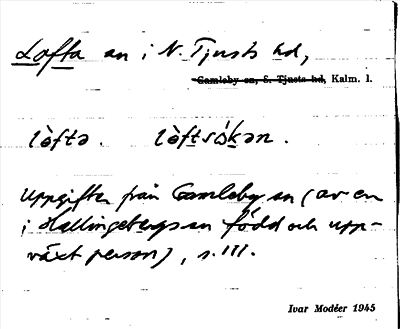 Lofta sn i N. Tjusts hd,
Gamleby sn, S. Tjusts hd, Kalm. l.
lòftə. lòftsókən.
Uppgiften från Gamleby sn (av en
i Hallingebergs sn född och upp-
växt person), s. III.
Ivar Modéer 1945